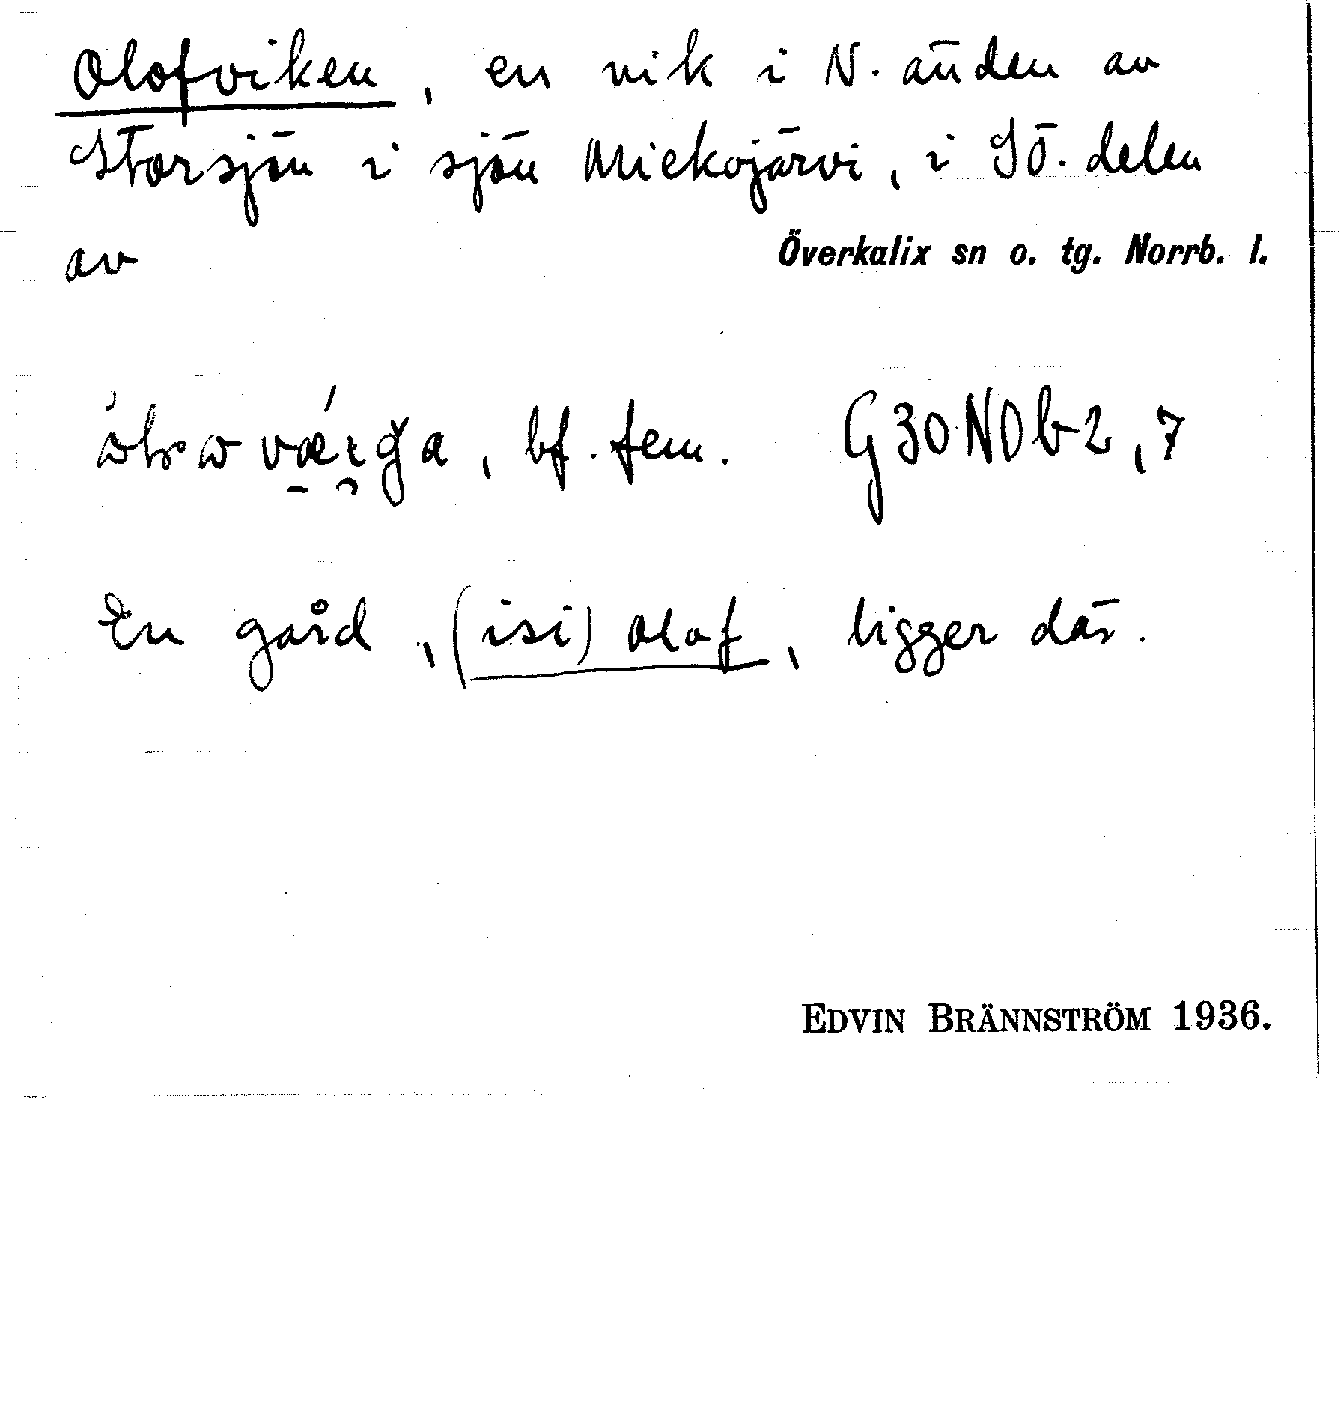 Olofviken, en vik i N. änden av
Storsjön i sjön Miekojärvi, i SÖ. delen
av Överkalix sn o. tg. Norrb. l.
bf. fem. G30NOb2,7
En gård, (isi) Olof, ligger där.
EDVIN BRÄNNSTRÖM 1936.